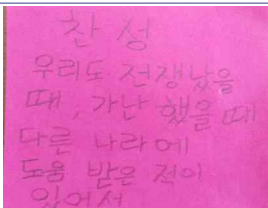 찬성
우리도 전쟁났을
때, 가난 했을 때
다른 나라에
도움 받은 적이
있어서